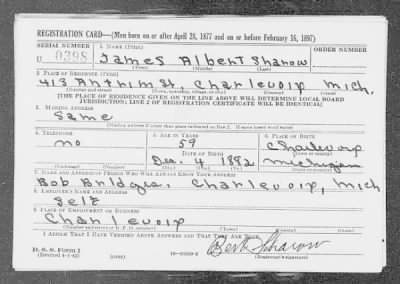 REGISTRATION CARD—(Men born on or after April 28, 1877 and on or before February 16, 1897)
SERIAL NUMBER 1. NAME (Print)
U 0398 James Albert Sharow
(First) (Middle) (Last)
2. PLACE OF RESIDENCE (Print)
413 Antrim st. Charlevoix Mich.
(Number and street) (Town, township, village, or city) (County) (State)
[THE PLACE OF RESIDENCE GIVEN ON THE LINE ABOVE WILL DETERMINE LOCAL BOARD
JURISDICTION; LINE 2 OF REGISTRATION CERTIFICATE WILL BE IDENTICAL]
3. MAILING ADDRESS
Same
[Mailing address if other than place indicated on line 2. If same insert word same]
4. TELEPHONE 5. AGE IN YEARS 6. PLACE OF BIRTH
no 59 Charlevoix
DATE OF BIRTH (Town or county)
Dec. 4 1882 Michigan
(Mo.) (Day) (Yr.) (State or country)
7. NAME AND ADDRESS OF PERSON WHO WILL ALWAYS KNOW YOUR ADDRESS
Bob Bridge, Charlevoix, Mich
8. EMPLOYER'S NAME AND ADDRESS
Self
9. PLACE OF EMPLOYMENT OR BUSINESS
Charlevoix
(Number and street or R. F. D. number) (Town) (County) (State)
I AFFIRM THAT I HAVE VERIFIED ABOVE ANSWERS AND THAT THEY ARE TRUE.
D. S. S. Form 1
(Revised 4-1-42) (over) Bert Sharow
(Registrant's signature)